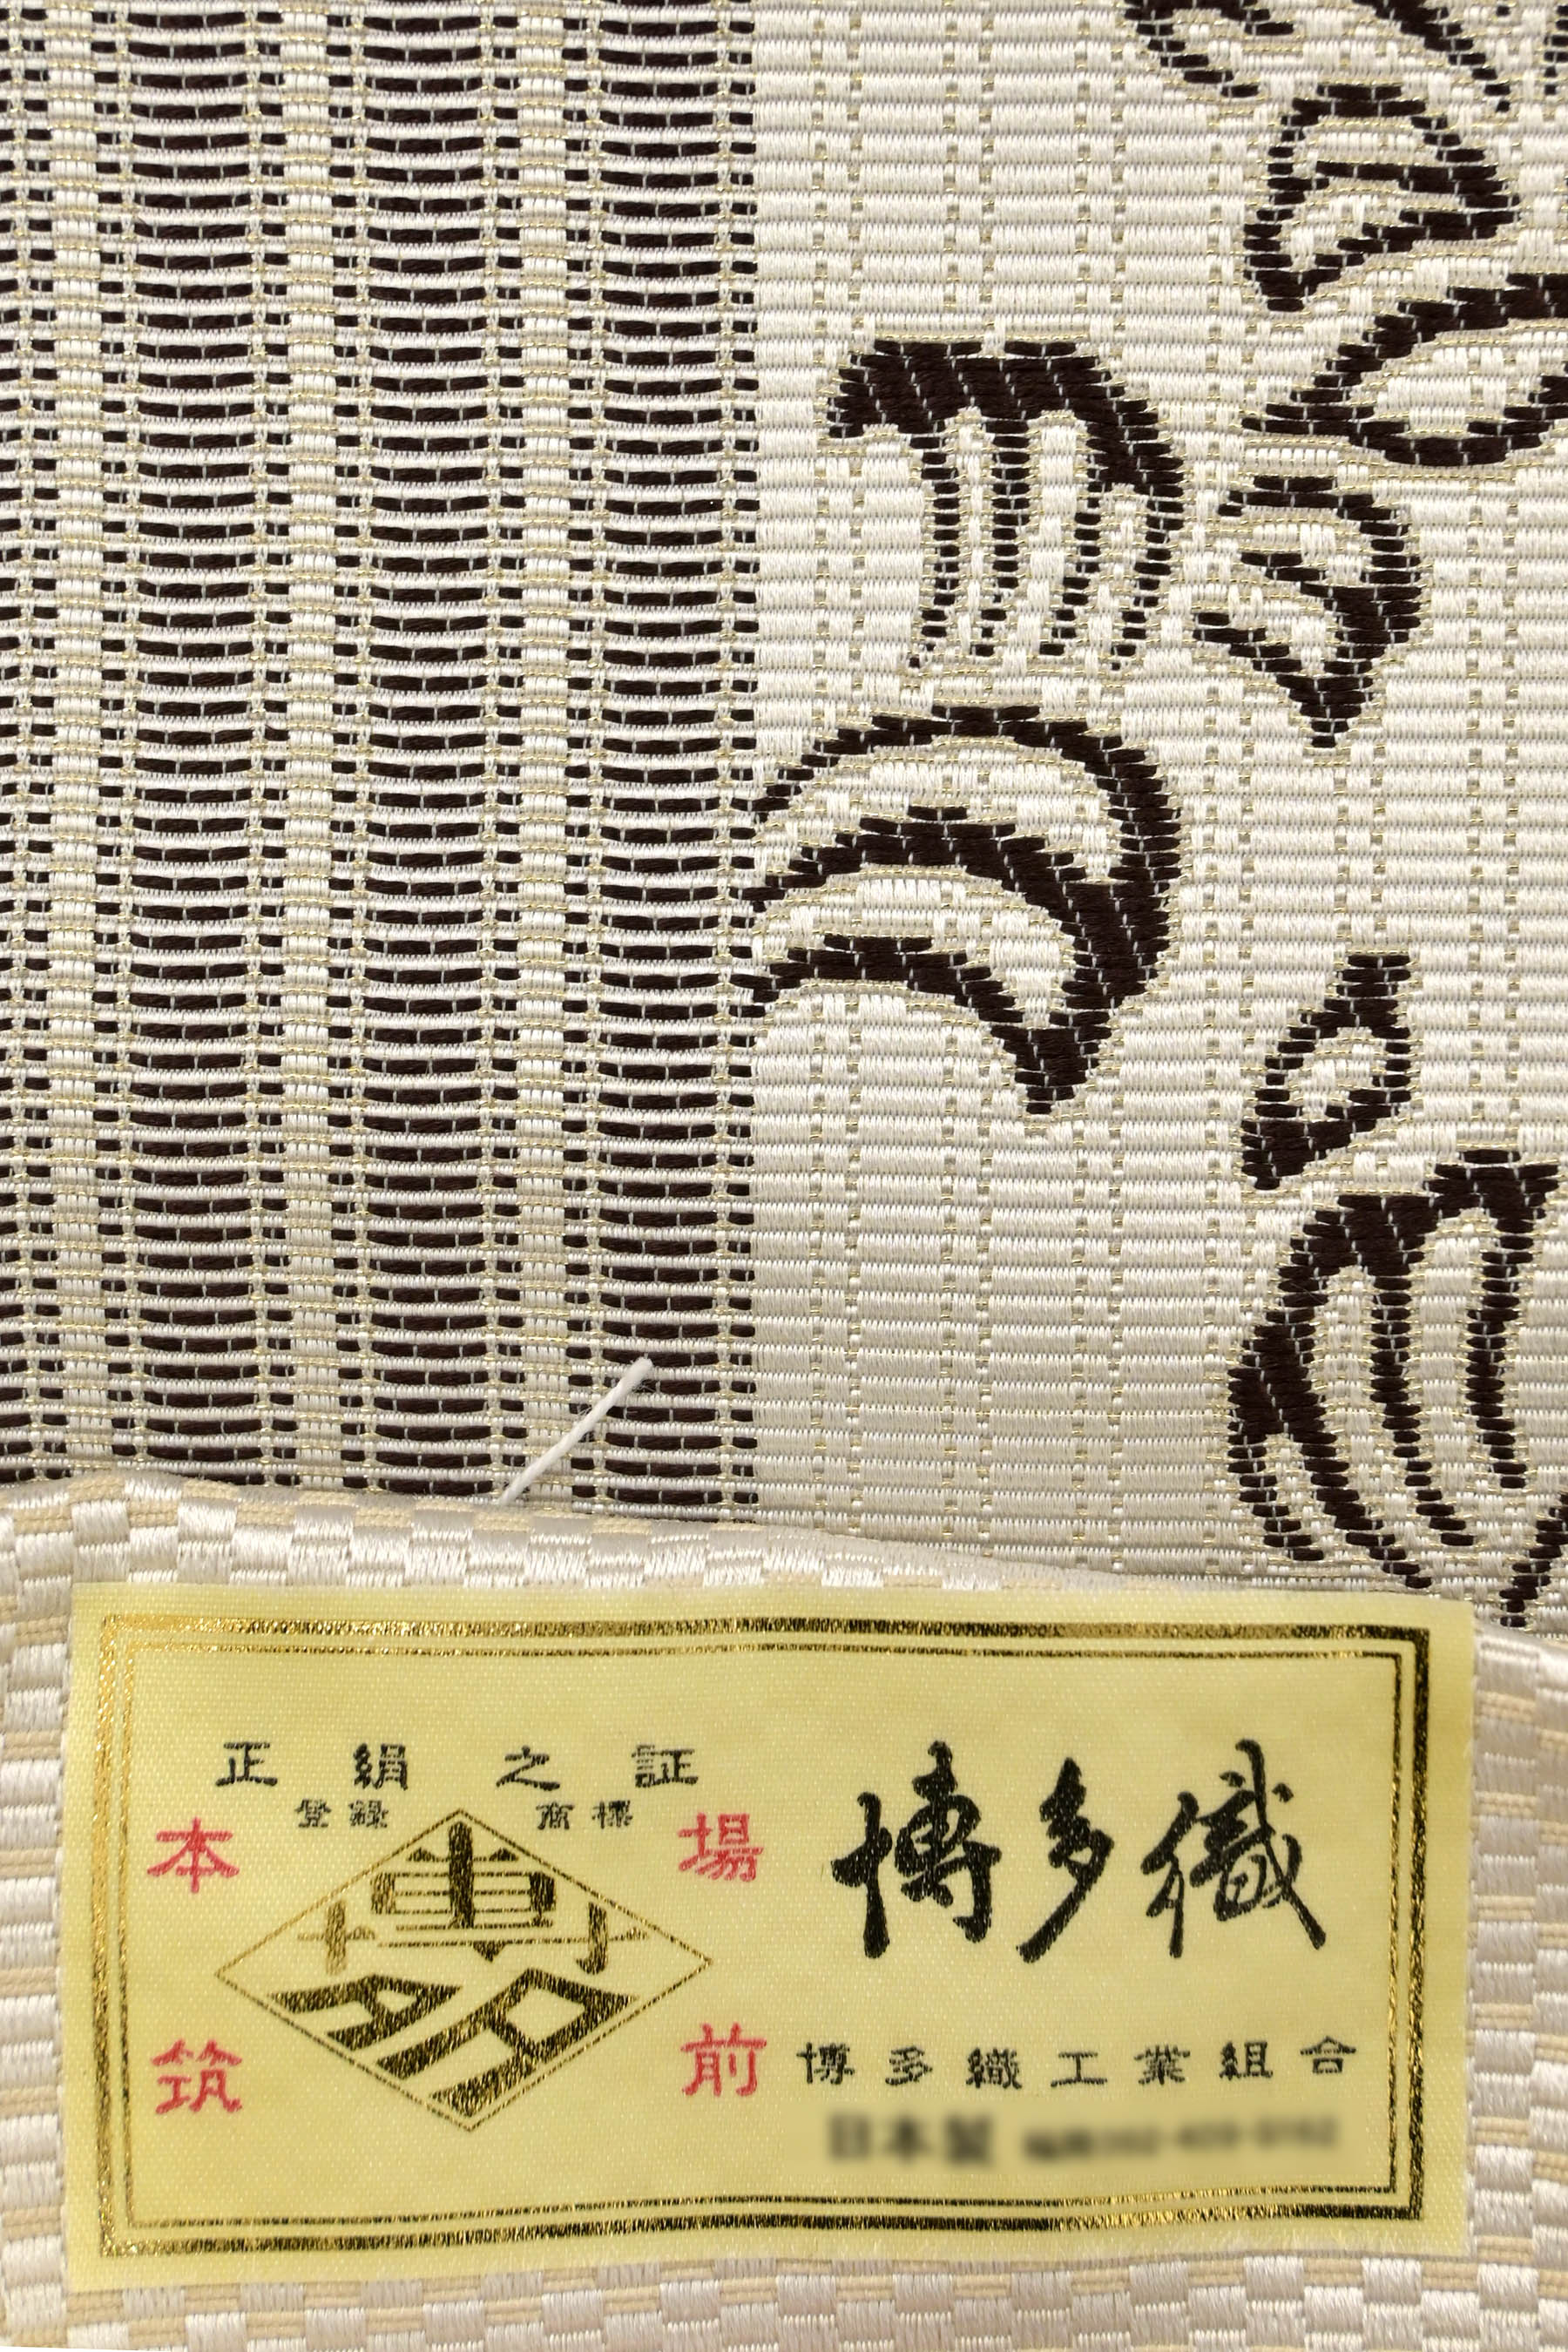 正絹之証
登録 商標
本 場
博多
筑 前
博多織
博多織工業組合
日本製